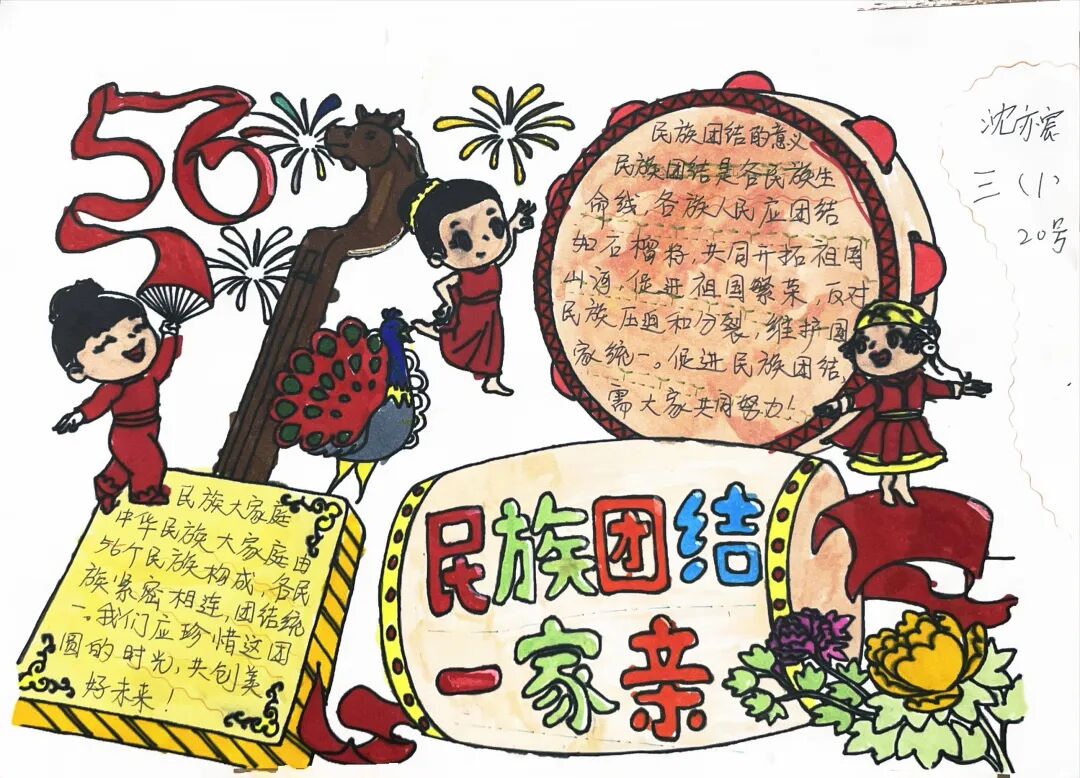 56
民族团结的意义
民族团结是各民族生
命线,各族人民应团结
如石榴籽,共同开拓祖国
山河,促进祖国繁荣,反对
民族压迫和分裂,维护国
家统一。促进民族团结,
需大家共同努力!
沈亦宸
三(1)
20号
民族大家庭
中华民族大家庭由
56个民族构成,各民
族紧密相连,团结统
一。我们应珍惜这团
圆的时光,共创美
好未来!
民族团结
一家亲